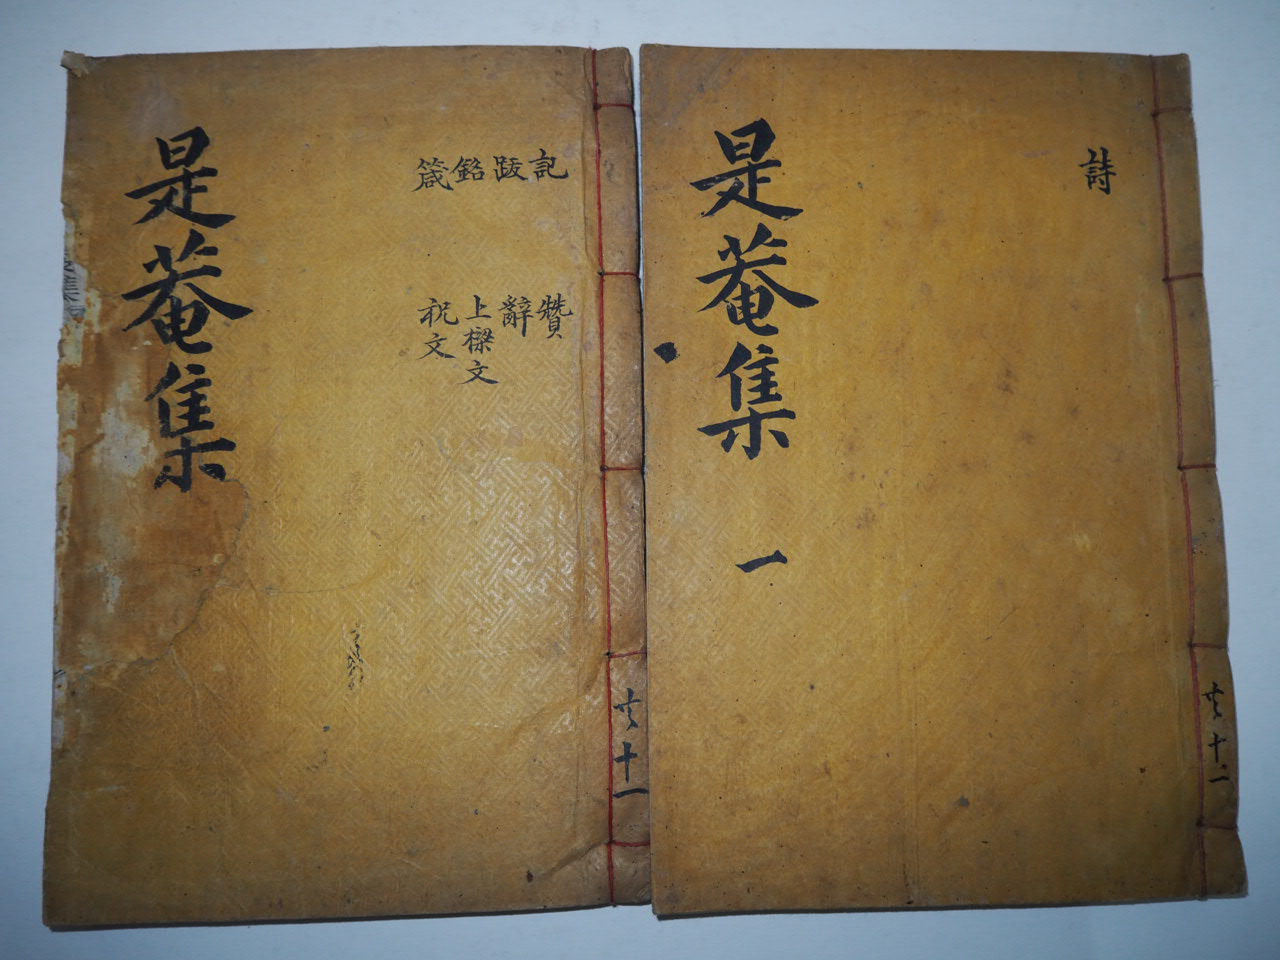 是菴集
記
跋
銘
箴
贊
辭
上樑文
祝文
共十一
是菴集 一
詩
共十一